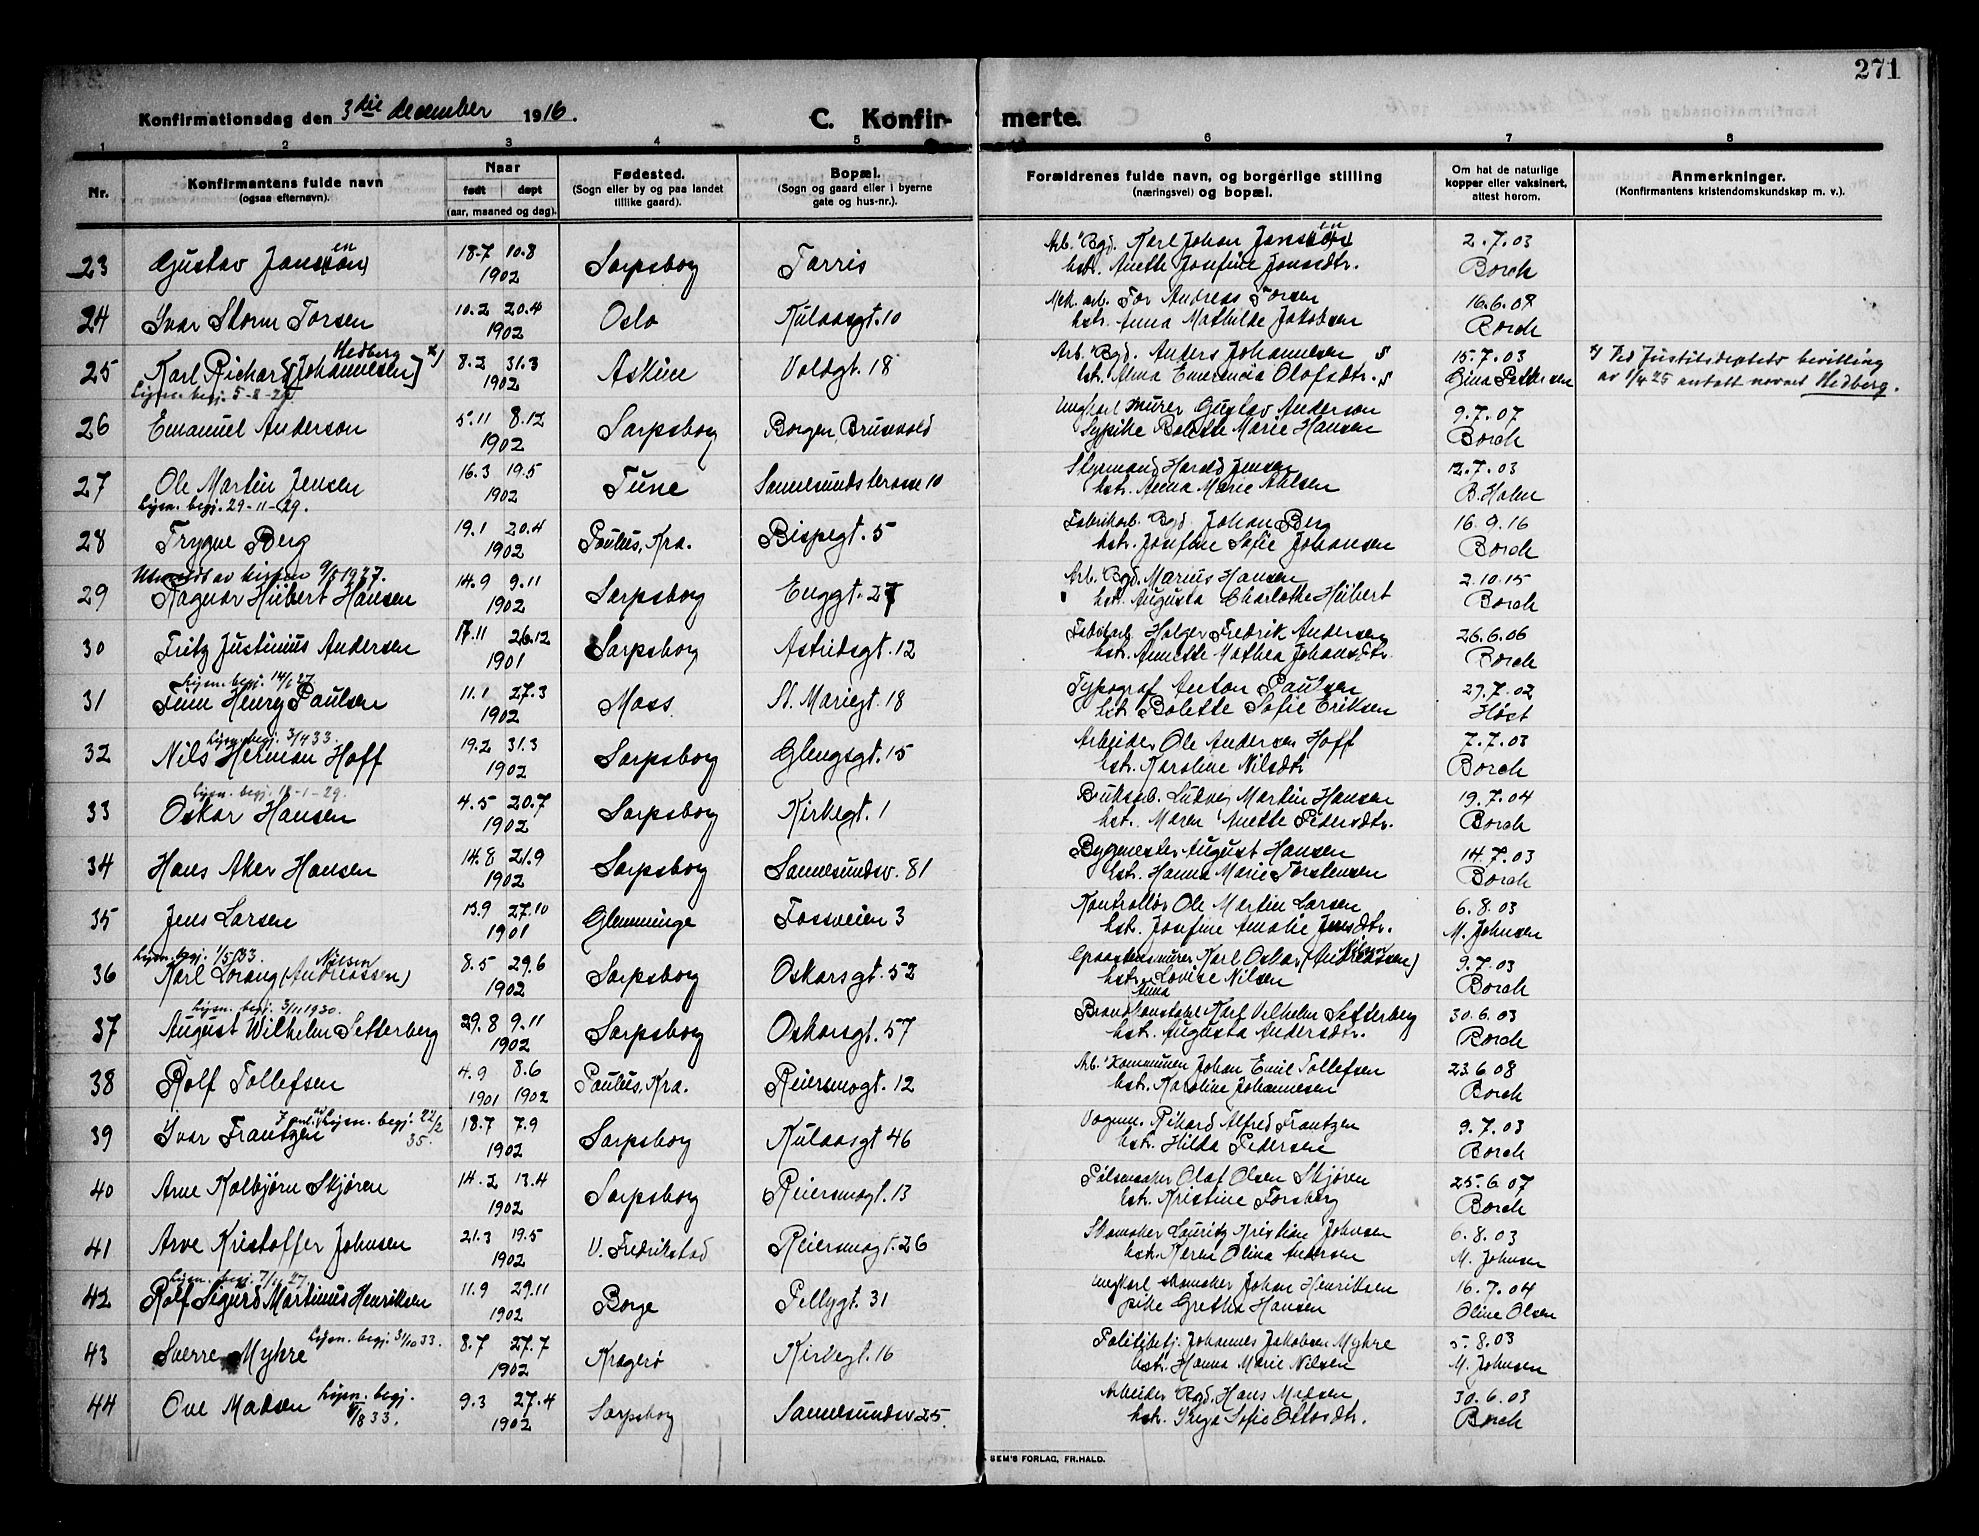 271
Konfirmationsdag den 3die december 1916.
C. Konfir- merte.
1 2 3 4 5 6 7 8
Nr.
Konfirmantens fulde navn
(ogsaa efternavn).
Naar
født døpt
(aar, maaned og dag).
Fødested.
(Sogn eller by og paa landet
tillike gaard).
Bopæl.
(Sogn og gaard eller i byerne
gate og hus-nr.).
Forældrenes fulde navn, og borgerlige stilling
(næringsvei) og bopæl.
Om hat de naturlige
kopper eller vaksinert,
attest herom.
Anmerkninger.
(Konfirmantens kristendomskundskap m. v.).
23 Gustav Janssen 18.7 10.8 1902 Sarpsborg Tarris
Arb. Bgd. Karl Johan Janssen
hstr. Anette Josefine Jonsdtr.
2.7.03
Borch
24 Ivar Storm Torsen 10.2 20.4 1902 Oslo Kulaasgt. 10
Mek. arb. Tor Andreas Torsen
hstr. Anna Mathilde Jakobsen
16.6.09
Borch
25 Karl Richard [Johannesen] Hedberg x) 8.2 31.3 1902 Askim Voldgt. 18
Lysn. begj. 5-8-29
Arb. Bgd. Anders Johannesen
hstr. Alma Emerencia Olofsdtr.
15.7.03
Gina Pettersen
x) Ved Justitsdeptets bevilling
av 1/4 25 antatt navnet Hedberg.
26 Emanuel Anderson 5.11 8.12 1902 Sarpsborg Borgen, Brusevold
Ungkarl murer Gustav Anderson
Sypike Bolette Marie Hansen
9.7.07
Borch
27 Ole Martin Jensen 16.3 19.5 1902 Tune Sannesundsterasse 10
Lysn. begj. 29-11-29.
Styrmand Harald Jensen
hstr. Anna Marie Ahlsen
12.7.03
B. Holm
28 Trygve Berg 19.1 20.4 1902 Paulus, Kra. Bispegt. 5
Fabrikarb. Bgd. Johan Berg
hstr. Josefine Sofie Johansen
16.9.16
Borch
Utmeldt av kirken 9/5 1927.
29 Ragnar Hübert Hansen 14.9 9.11 1902 Sarpsborg Enggt. 27
Arb. Bgd. Marius Hansen
hstr. Augusta Charlothe Hübert
2.10.15
Borch
30 Fritz Justinius Andersen 17.11 26.12 1901 Sarpsborg Astridsgt. 12
Fabrikarb. Holger Fredrik Andersen
hstr. Annette Mathea Johansdtr.
26.6.06
Borch
Lysn. begj. 14/1 27.
31 Finn Henry Paulsen 11.1 27.3 1902 Moss. St. Mariegt. 18
Typograf Anton Paulsen
hstr. Bolette Sofie Eriksen
29.7.02
Høst
Lysn. begj. 3/4 33.
32 Nils Herman Hoff 19.2 31.3 1902 Sarpsborg Glengsgt. 15
Arbeider Ole Andersen Hoff
hstr. Karoline Nilsdtr
7.7.03
Borch
Lysn. begj. 18-1-29.
33 Oskar Hansen 4.5 20.7 1902 Sarpsborg Kirkegt. 1
Bruksarb. Ludvig Martin Hansen
hstr. Maren Anette Pedersdtr.
19.7.04
Borch
34 Hans Aker Hansen 14.8 21.9 1902 Sarpsborg Sannesundsv. 81
Bygmester August Hansen
hstr. Hanna Marie Torstensen
14.7.03
Borch
35 Jens Larsen 13.9 27.10 1901 Glemminge Fossveien 3
Kontrollør Ole Martin Larsen
hstr. Josefine Amalie Jensdtr.
6.8.03
M. Johnsen
Lysn. begj. 1/5 33.
36 Karl Lorang (Andreassen) Nilsen 8.5 29.6 1902 Sarpsborg Oskarsgt. 52
Graastensmurer Karl Oskar (Andreassen) Nilsen
hstr. Lovise Nilsen
9.7.03
Borch
Lysn. begj. 3/11 1930.
37 August Wilhelm Setterberg 29.8 9.11 1902 Sarpsborg Oskarsgt. 57
Brandkonstabel Karl Vilhelm Setterberg
hstr. Anna Augusta Andersdtr.
30.6.03
Borch
38 Rolf Tollefsen 4.9 8.6 1901 1902 Paulus, Kra. Reiersnogt. 12
Arb. Kommunen Johan Emil Tollefsen
hstr. Karoline Johannesen
23.6.08
Borch
39 Ivar Frantzen Lysn. begj. 22/2 35. 18.7 7.9 1902 Sarpsborg Kulaasgt 46
Vognm. Rikard Alfred Frantzen
hstr. Hilda Pedersen
9.7.03
Borch
40 Arne Kolbjørn Skjøren 14.2 13.4 1902 Sarpsborg Reiersnogt. 13
Pølsemaker Olaf Olsen Skjøren
hstr. Kristine Forsberg
25.6.07
Borch
41 Arve Kristoffer Johnsen 21.3 19.5 1902 V. Fredrikstad Reiersnogt. 26
Skomaker Lauritz Kristian Johnsen
hstr. Karen Olina Andersen
6.8.03
M. Johnsen
Lysn. begj. 7/11 27.
42 Rolf Sigurd Martinus Henriksen 11.9 29.11 1902 Borge Pellygt. 31
Ungkarl skomaker Johan Henriksen
pike Grethe Hansen
16.7.04
Oline Olsen
43 Sverre Myhre Lysn. begj. 31/10 33. 8.7 27.7 1902 Kragerø Kirkegt. 16
Politibetj. Johannes Jakobsen Myhre
hstr. Hanna Marie Nilsen
5.8.03
M. Johnsen
44 Ove Madsen Lysn. begj. 8/8 33. 9.3 27.4 1902 Sarpsborg Sannesundsv. 25.
Arbeider Bgd. Hans Madsen
hstr. Inga Sofie Ottosdtr.
30.6.03
Borch
SEM'S FORLAG, FR.HALD.